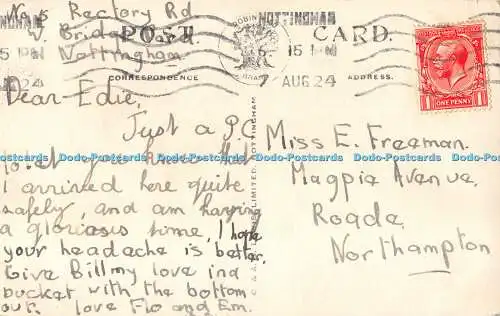 No 5 Rectory Rd
W. Bridgford
Nottingham
POST CARD.
NOTTINGHAM
5 15 PM
7 AUG 24
CORRESPONDENCE
ADDRESS.
ONE PENNY
Dear Edie,
Just a P.C
to let you know that
I arrived here quite
safely, and am having
a glorious time, I hope
your headache is better.
Give Bill my love in a
bucket with the bottom
out. love Flo and Em.
Miss E. Freeman.
Magpie Avenue,
Roade,
Northampton
LIMITED, NOTTINGHAM
Dodo-Postcards Dodo-Postcards Dodo-Postcards Dodo-Postcards Dodo-Postcards